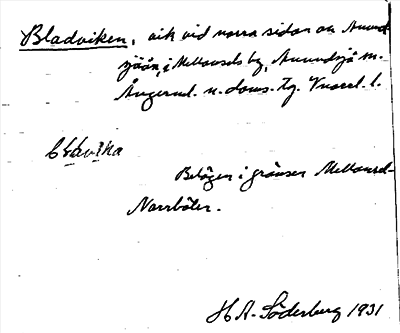 Bladviken, vik vid norra sidan av Anund-
sjöån, i Mellansels by, Anundsjö sn.
Ångerml. n. doms. tg. Vnorrl. l.
Belägen i gränsen Mellansel-
Norrböle.
H A. Söderberg 1931